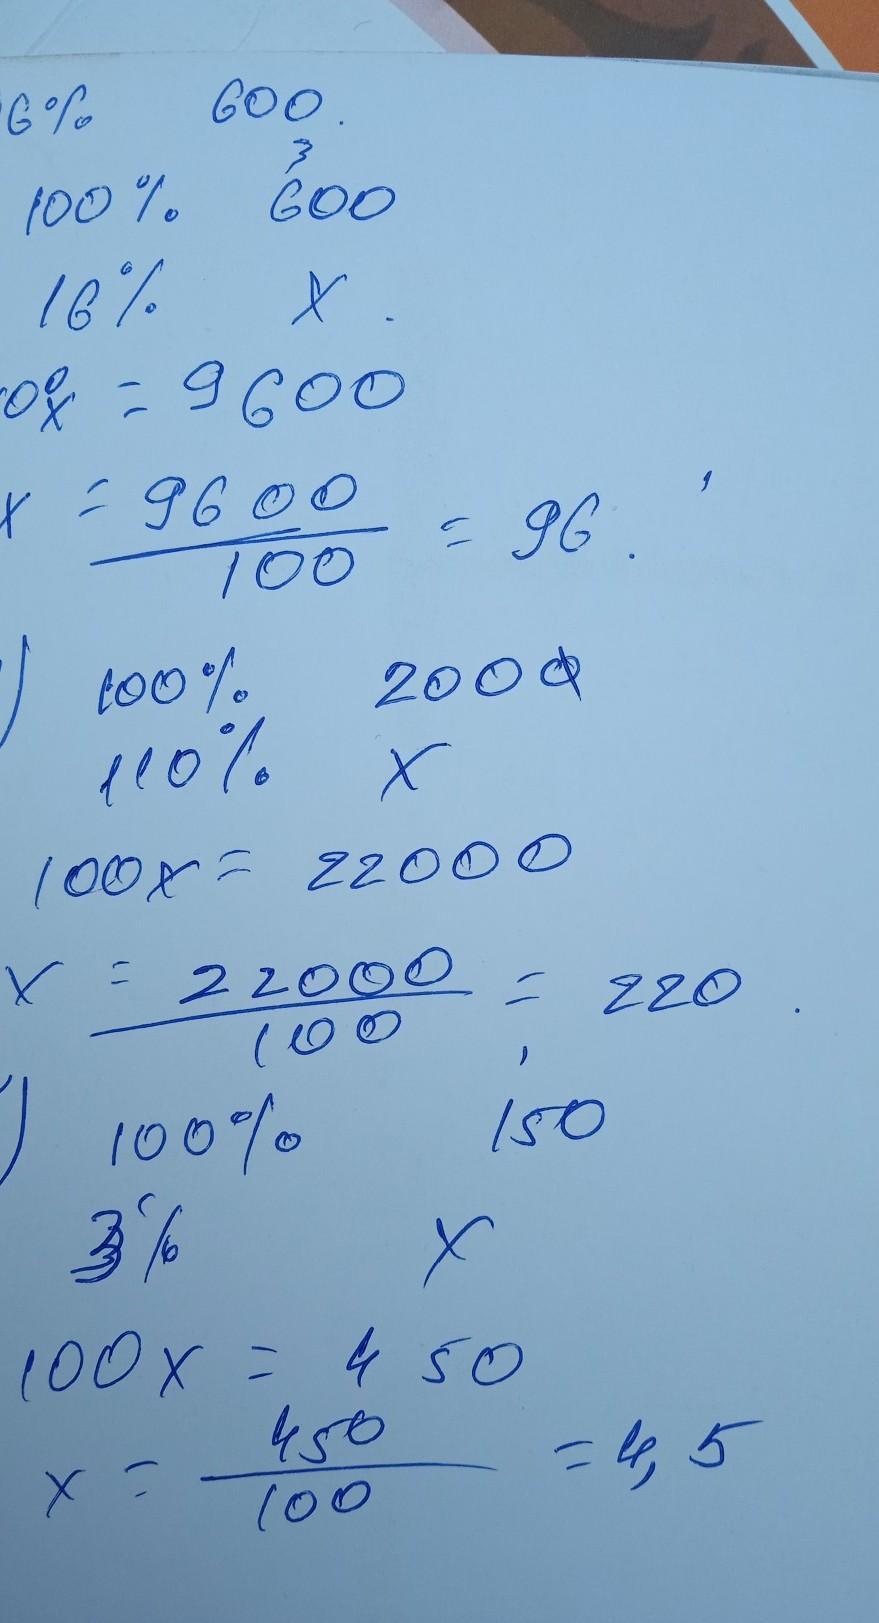 6% 600.
3
100% 600
16% x.
00x = 9600
x = 9600 / 100 = 96.
) 100% 200
110% x
100x = 22000
x = 22000 / 100 = 220.
) 100% 150
3% x
100x = 450
x = 450 / 100 = 4,5